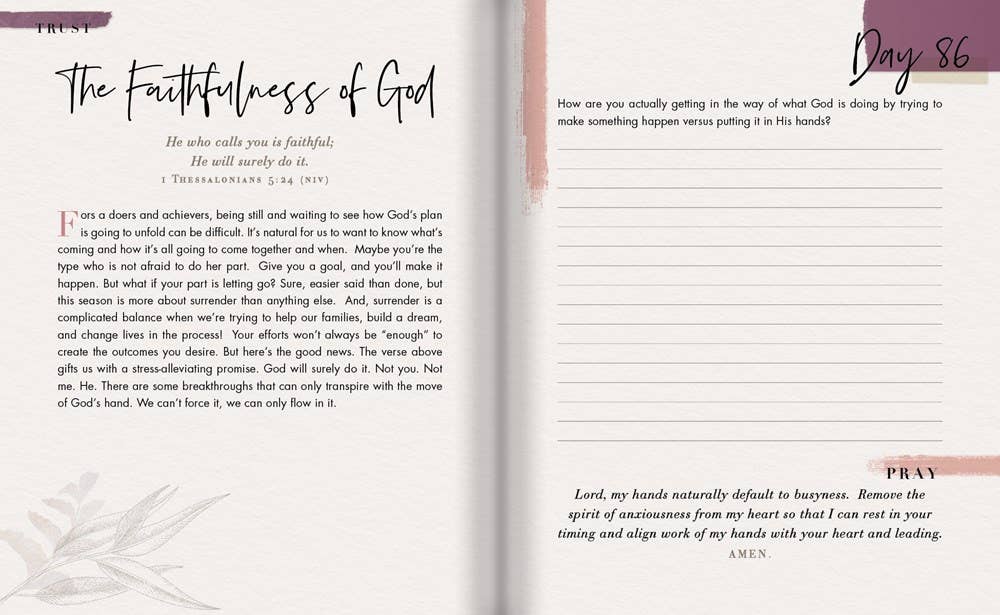 TRUST
The Faithfulness of God
He who calls you is faithful;
He will surely do it.
1 Thessalonians 5:24 (NIV)
Fors a doers and achievers, being still and waiting to see how God's plan
is going to unfold can be difficult. It's natural for us to want to know what's
coming and how it's all going to come together and when. Maybe you're the
type who is not afraid to do her part. Give you a goal, and you'll make it
happen. But what if your part is letting go? Sure, easier said than done, but
this season is more about surrender than anything else. And, surrender is a
complicated balance when we're trying to help our families, build a dream,
and change lives in the process! Your efforts won't always be "enough" to
create the outcomes you desire. But here's the good news. The verse above
gifts us with a stress-alleviating promise. God will surely do it. Not you. Not
me. He. There are some breakthroughs that can only transpire with the move
of God's hand. We can't force it, we can only flow in it.
Day 86
How are you actually getting in the way of what God is doing by trying to
make something happen versus putting it in His hands?
PRAY
Lord, my hands naturally default to busyness. Remove the
spirit of anxiousness from my heart so that I can rest in your
timing and align work of my hands with your heart and leading.
AMEN.